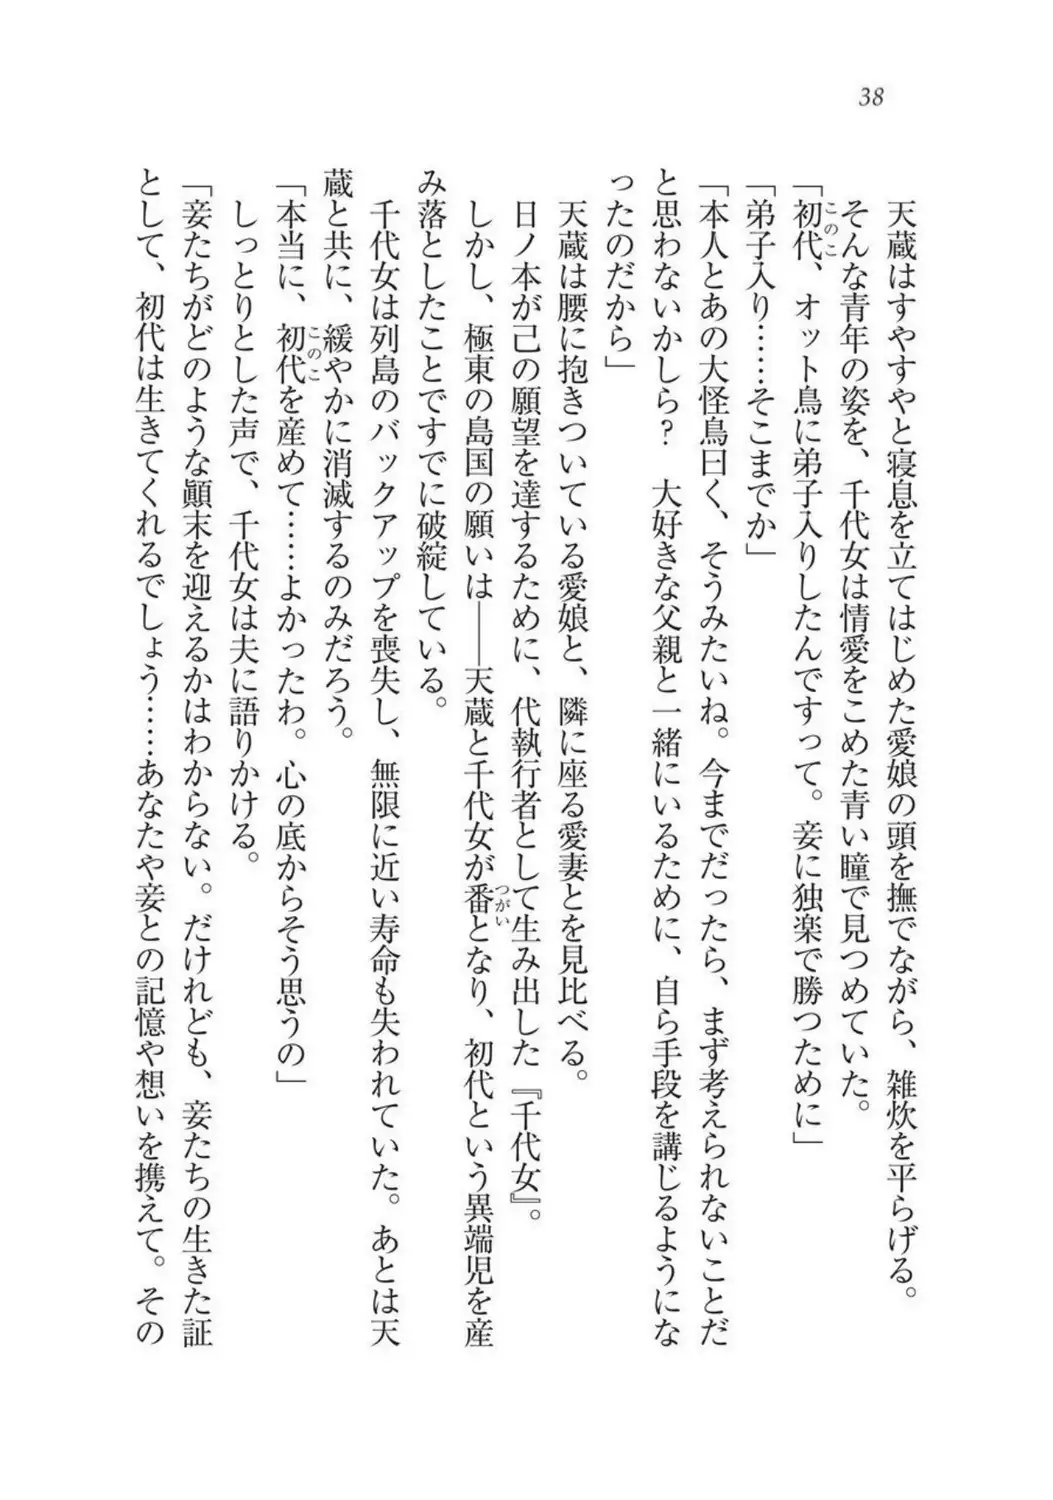 38
天蔵はすやすやと寝息を立てはじめた愛娘の頭を撫でながら、雑炊を平らげる。
そんな青年の姿を、千代女は情愛をこめた青い瞳で見つめていた。
「初代、オット鳥に弟子入りしたんですって。妾に独楽で勝つために」
このこ
「弟子入り……そこまでか」
「本人とあの大怪鳥曰く、そうみたいね。今までだったら、まず考えられないことだ
と思わないかしら？　大好きな父親と一緒にいるために、自ら手段を講じるようにな
ったのだから」
天蔵は腰に抱きついている愛娘と、隣に座る愛妻とを見比べる。
日ノ本が己の願望を達するために、代執行者として生み出した『千代女』。
しかし、極東の島国の願いは――天蔵と千代女が番となり、初代という異端児を産
つがい
み落としたことですでに破綻している。
千代女は列島のバックアップを喪失し、無限に近い寿命も失われていた。あとは天
蔵と共に、緩やかに消滅するのみだろう。
「本当に、初代を産めて……よかったわ。心の底からそう思うの」
このこ
しっとりとした声で、千代女は夫に語りかける。
「妾たちがどのような顛末を迎えるかはわからない。だけれども、妾たちの生きた証
として、初代は生きてくれるでしょう……あなたや妾との記憶や想いを携えて。その